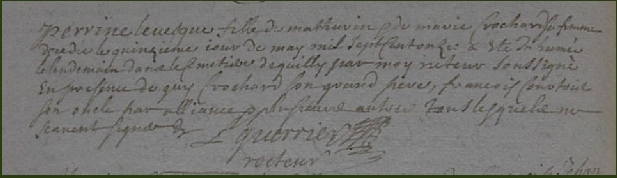 perrine levesque fille de mathurin & de marie Crochard sa femme
decedee le quinzieme iour de may mil sept cent onze a esté inhumée
le lendemain dans le cemetiere de quilly par moy recteur soussigné
En presence de guy Crochard son grand pere, francois
son oncle par alliance & plusieurs autres tous lesquels ne
scavent signer
L guerrier
recteur